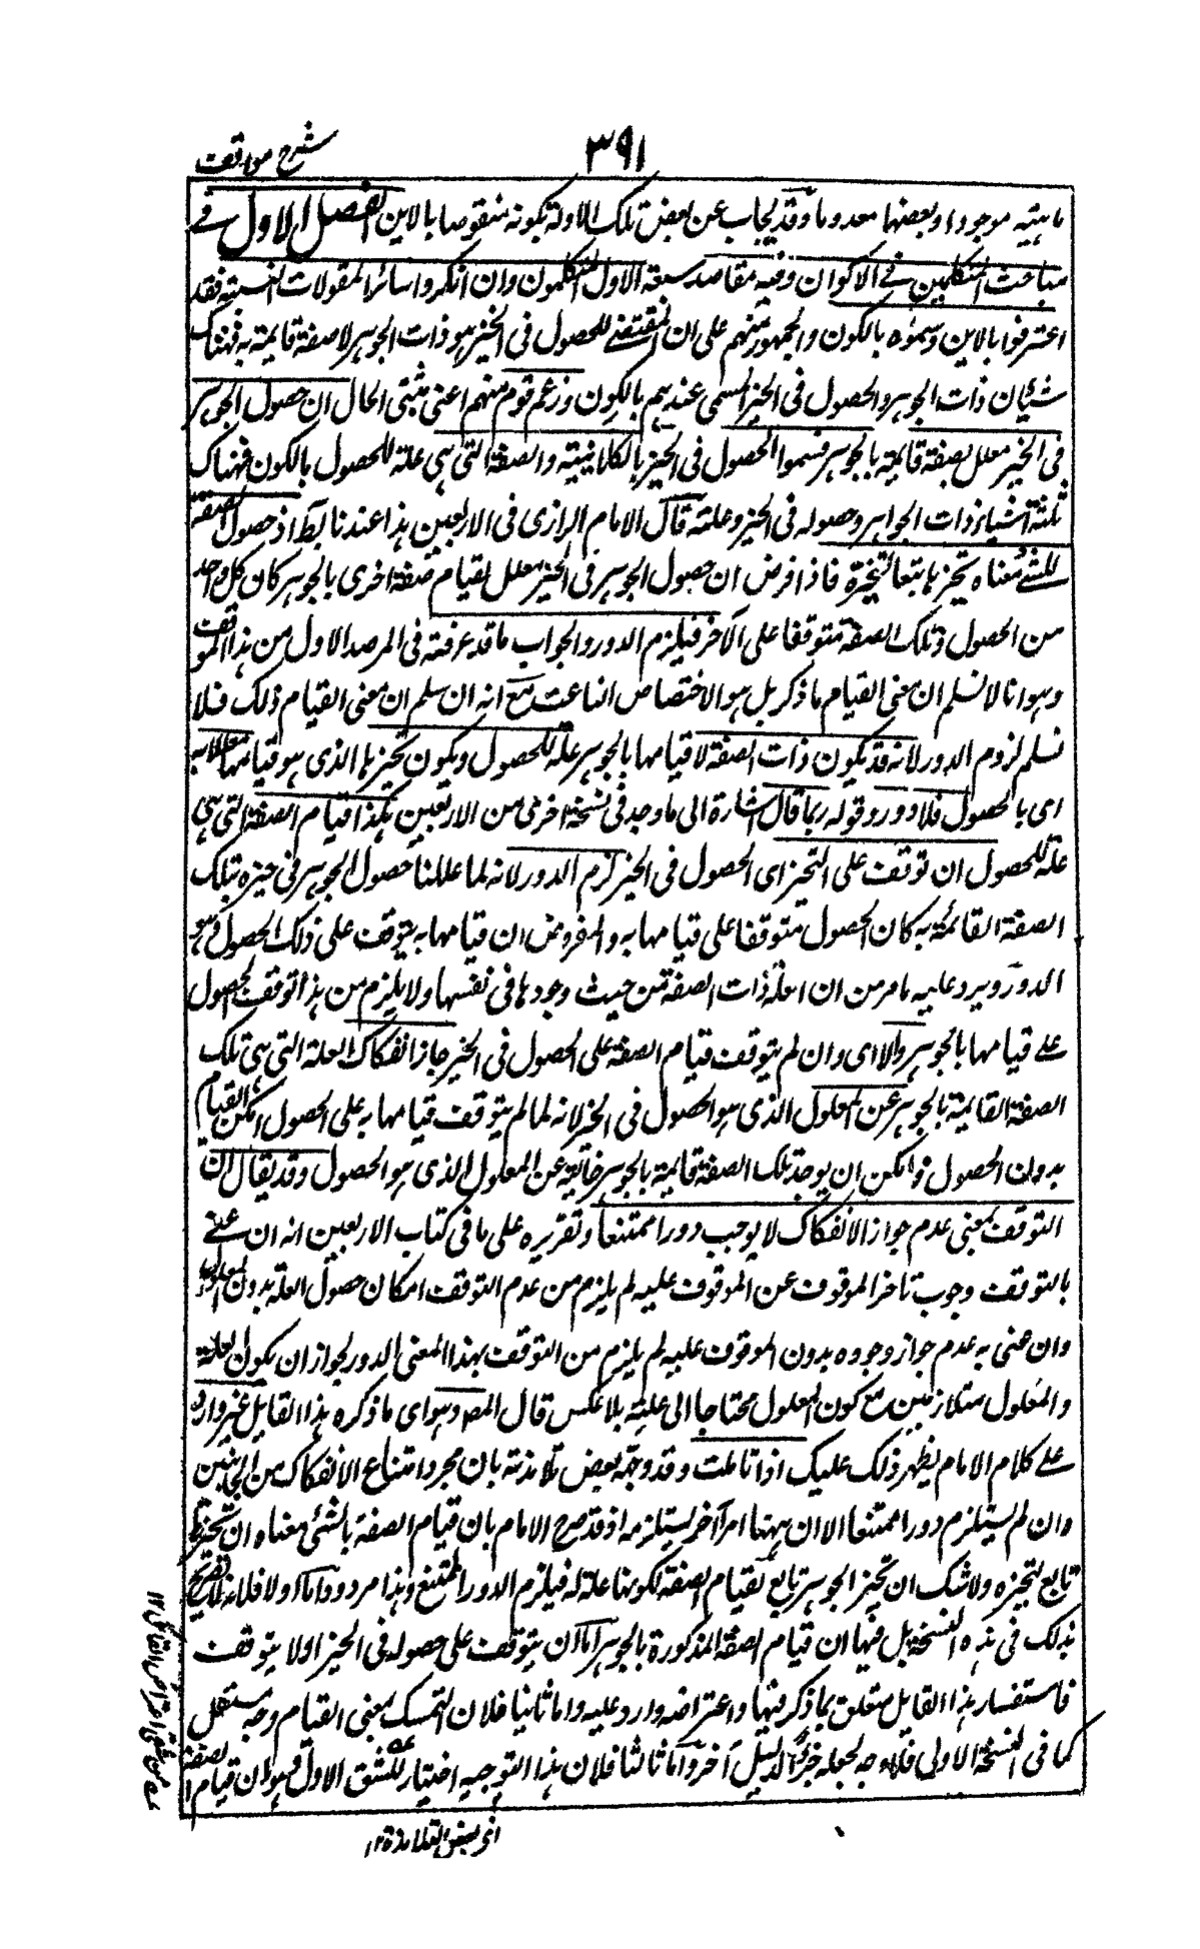 ٣٩١
شرح مواقف
ماهيته موجودا وبعضها معدوما وقد يجاب عن بعض تلك الادلة بكونه منقوضا بالاين الفصل الاول في
مباحث المتكلمين في الاكوان وفيه مقاصد سبعة الاول المتكلمون وان انكروا سائر المقولات النسبية فقد
اعترفوا بالاين وسموه بالكون والجمهور منهم على ان المقتضى للحصول في الحيز هو ذات الجوهر لا صفة قائمة به فهناك
شيئان ذات الجوهر والحصول في الحيز المسمى عندهم بالكون وزعم قوم منهم اعني مثبتي الحال ان حصول الجوهر
في الحيز معلل بصفة قائمة بالجوهر فسموا الحصول في الحيز بالكائنية والصفة التي هي علة للحصول بالكون فهناك
ثلثة اشياء ذات الجوهر وحصوله في الحيز وعلته قال الامام الرازي في الاربعين هذا عندنا بط اذ حصول الصفة
للشئ معناه تحيزها تبعا لتحيزه فاذا فرض ان حصول الجوهر في الحيز معلل بقيام صفة اخرى بالجوهر كان كل واحد
من الحصول وتلك الصفة متوقفا على الآخر فيلزم الدور والجواب ما قد عرفته في المرصد الاول من هذا الموقف
وهو انا لا نسلم ان معنى القيام ما ذكر بل هو الاختصاص الناعت مع انه ان سلم ان معنى القيام ذلك فلا
نسلم لزوم الدور لانه قد يكون ذات الصفة لا قيامها بالجوهر علة للحصول ويكون تحيزها الذي هو قيامها معللا به
اى بالحصول فلا دور وقوله ربما قال اشارة الى ما وجد في نسخة اخرى من الاربعين هكذا قيام الصفة التي هي
علة للحصول ان توقف على التحيز اى الحصول في الحيز لزم الدور لانه لما عللنا حصول الجوهر في حيزه بتلك
الصفة القائمة به كان الحصول متوقفا على قيامها به والمفروض ان قيامها به يتوقف على ذلك الحصول وهو
الدور ويرد عليه ما مر من ان العلة ذات الصفة من حيث وجودها في نفسها ولا يلزم من هذا توقف الحصول
على قيامها بالجوهر والا اى وان لم يتوقف قيام الصفة على الحصول في الحيز جاز انفكاك العلة التي هي تلك
الصفة القائمة بالجوهر عن المعلول الذي هو الحصول في الحيز لانه لما لم يتوقف قيامها به على الحصول امكن القيام
بدون الحصول وامكن ان يوجد تلك الصفة قائمة بالجوهر خالية عن المعلول الذي هو الحصول وقد يقال ان
التوقف بمعنى عدم جواز الانفكاك لا يوجب دورا ممتنعا وتقريره على ما في كتاب الاربعين انه ان عنى
بالتوقف وجوب تاخر الموقوف عن الموقوف عليه لم يلزم من عدم التوقف امكان حصول العلة بدون المعلول
وان عنى به عدم جواز وجوده بدون الموقوف عليه لم يلزم من التوقف بهذا المعنى الدور لجواز ان يكون العلة
والمعلول متلازمين مع كون المعلول محتاجا الى علته بلا عكس قال المصـ وهو اى ما ذكره هذا القايل غير وارد
على كلام الامام يظهر ذلك عليك اذا تاملت وقد وجهه بعض تلامذته بان مجرد امتناع الانفكاك من الجانبين
وان لم يستلزم دورا ممتنعا الا ان ههنا امرا آخر يستلزمه اذ قد صرح الامام بان قيام الصفة بالشئ معناه ان تحيزها
تابع لتحيزه ولا شك ان تحيز الجوهر تابع لقيام الصفة لكونها علة له فيلزم الدور الممتنع وهذا مردود اما اولا فلانه لا تصريح
بذلك في هذه النسخة بل فيها ان قيام الصفة المذكورة بالجوهر اما ان يتوقف على حصوله في الحيز اولا يتوقف
فاستفسار هذا القايل متعلق بما ذكر فيها واعتراضه وارد عليه واما ثانيا فلان التمسك بمعنى القيام وجه مستقل
كما في النسخة الاولى فلا وجه لجعله جزءا لدليل آخر واما ثالثا فلان هذا التوجيه اختيار للشق الاول وهو ان قيام الصفة
اى بعض التلامذة ١٢